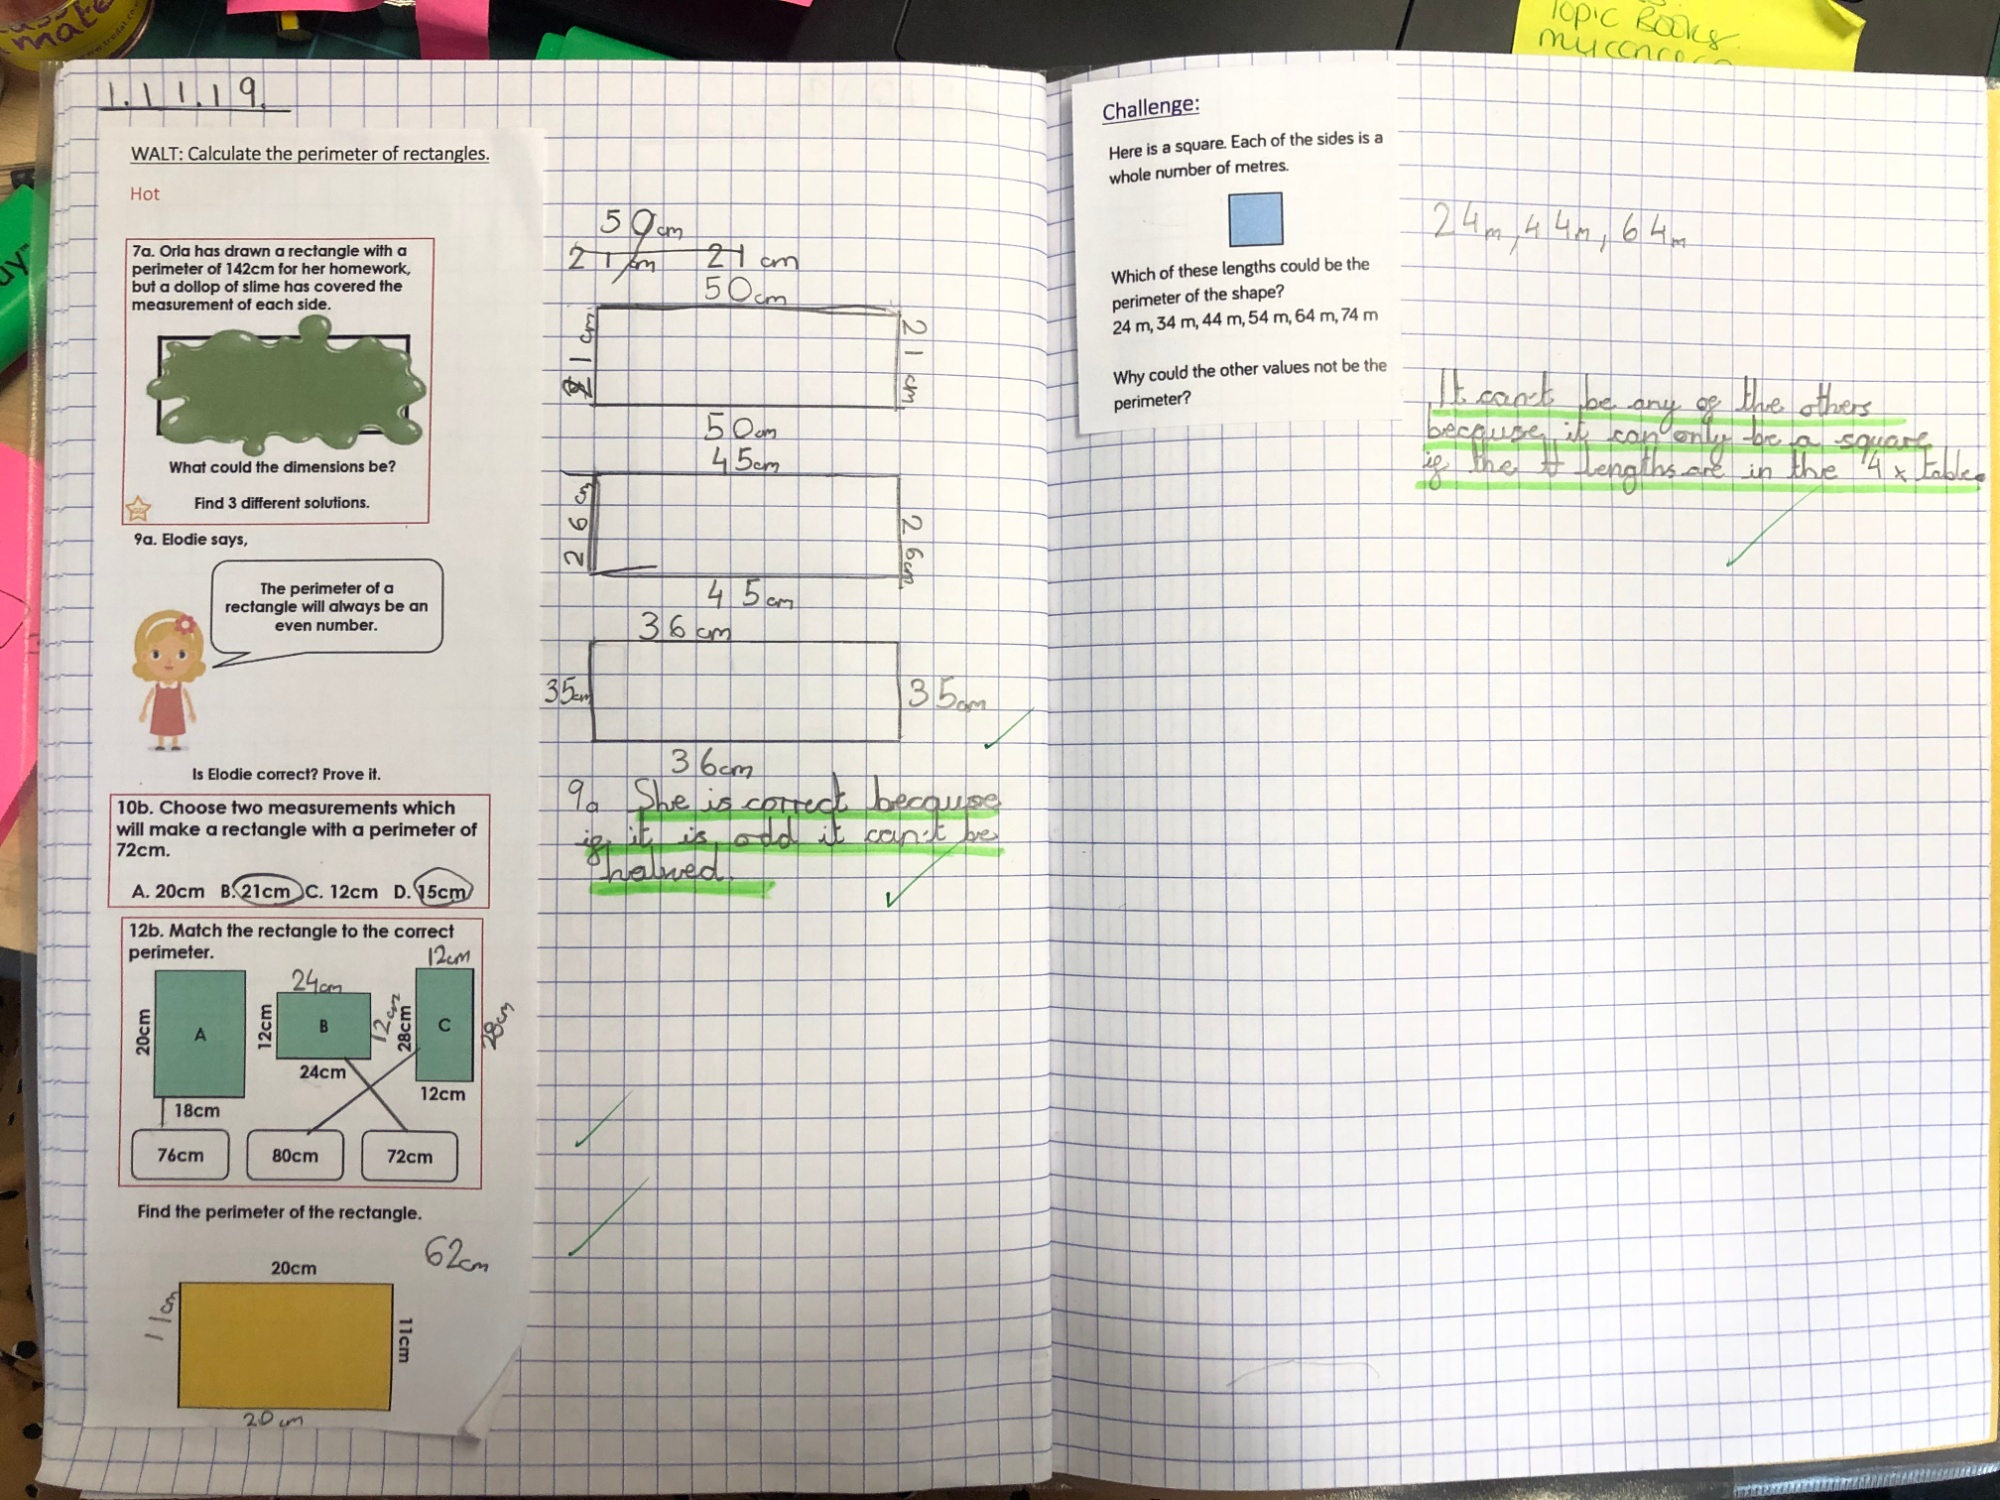 Topic Books
1.11.19.
WALT: Calculate the perimeter of rectangles.
Hot
7a. Orla has drawn a rectangle with a
perimeter of 142cm for her homework,
but a dollop of slime has covered the
measurement of each side.
What could the dimensions be?
Find 3 different solutions.
9a. Elodie says,
The perimeter of a
rectangle will always be an
even number.
Is Elodie correct? Prove it.
10b. Choose two measurements which
will make a rectangle with a perimeter of
72cm.
A. 20cm B. 21cm C. 12cm D. 15cm
12b. Match the rectangle to the correct
perimeter.
12cm
24cm
20cm
A
12cm
B
12cm
28cm
C
28cm
24cm
12cm
18cm
76cm
80cm
72cm
Find the perimeter of the rectangle.
62cm
20cm
11cm
11cm
20cm
50cm
21cm 21cm
50cm
21cm
21cm
50cm
45cm
26cm
26cm
45cm
36cm
35cm
35cm
36cm
9a She is correct because
if it is odd it can't be
halved.
Challenge:
Here is a square. Each of the sides is a
whole number of metres.
Which of these lengths could be the
perimeter of the shape?
24 m, 34 m, 44 m, 54 m, 64 m, 74 m
Why could the other values not be the
perimeter?
24m, 44m, 64m
It can't be any of the others
because it can only be a square
if the lengths are in the 4 x table.